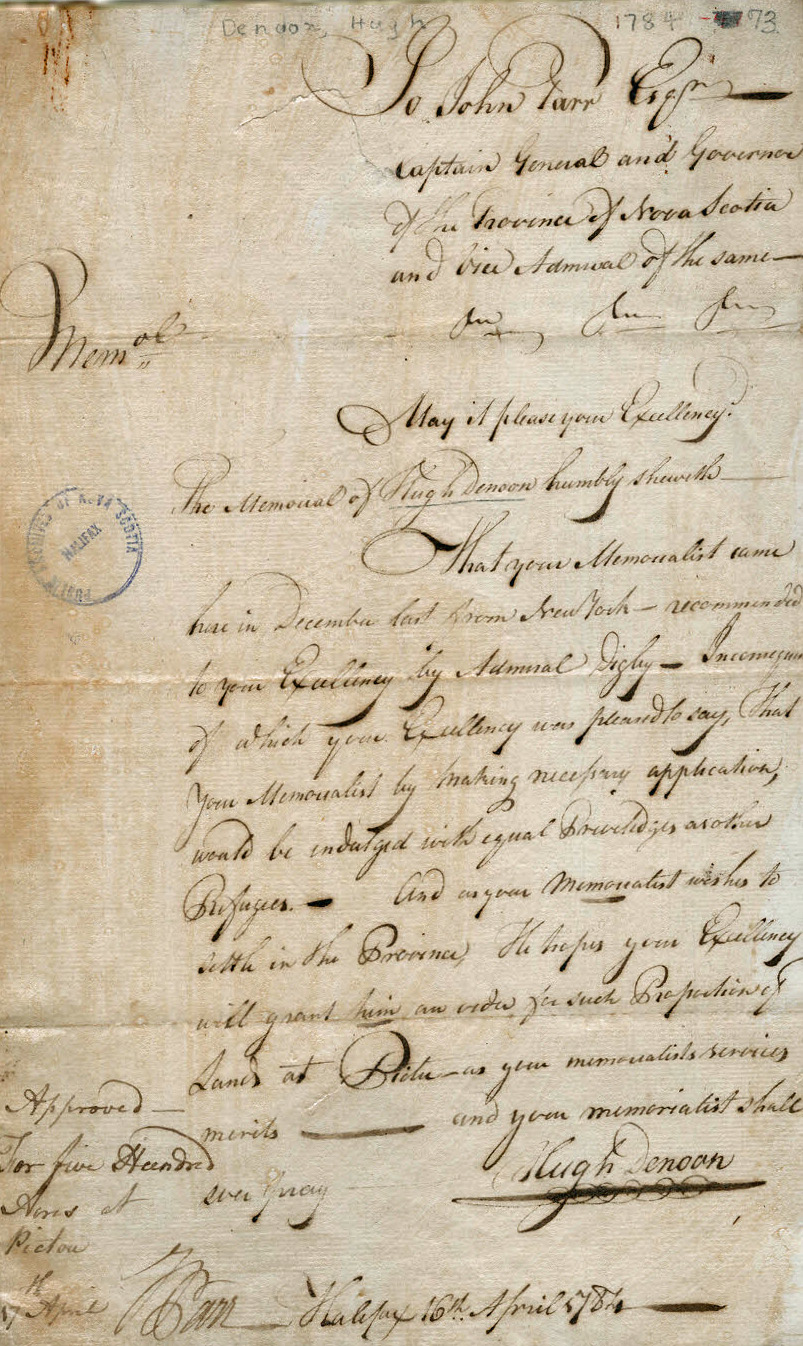 Denoon, Hugh 1784 73
To John Parr Esqr
Captain General and Governor
of the Province of Nova Scotia
and Vice Admiral of the same
Memol
May it please your Excellency.
The Memorial of Hugh Denoon humbly sheweth
That your Memorialist came
here in December last from New York – recommended
to your Excellency by Admiral Digby –
of which your Excellency was pleased to say, That
Your Memorialist by making necessary application,
would be indulged with equal Priviledges as other
Refugees. – And as your Memorialist wishes to
settle in the Province, He hopes your Excellency
will grant him an order for such Proportion of
Lands at Pictu – as your memorialists services
merits — and your memorialist shall
ever pray
Hugh Denoon
Approved –
For five Hundred
Acres at
Pictou
17th April
JParr
Halifax 16th April 1784 —
PUBLIC ARCHIVES OF NOVA SCOTIA
HALIFAX